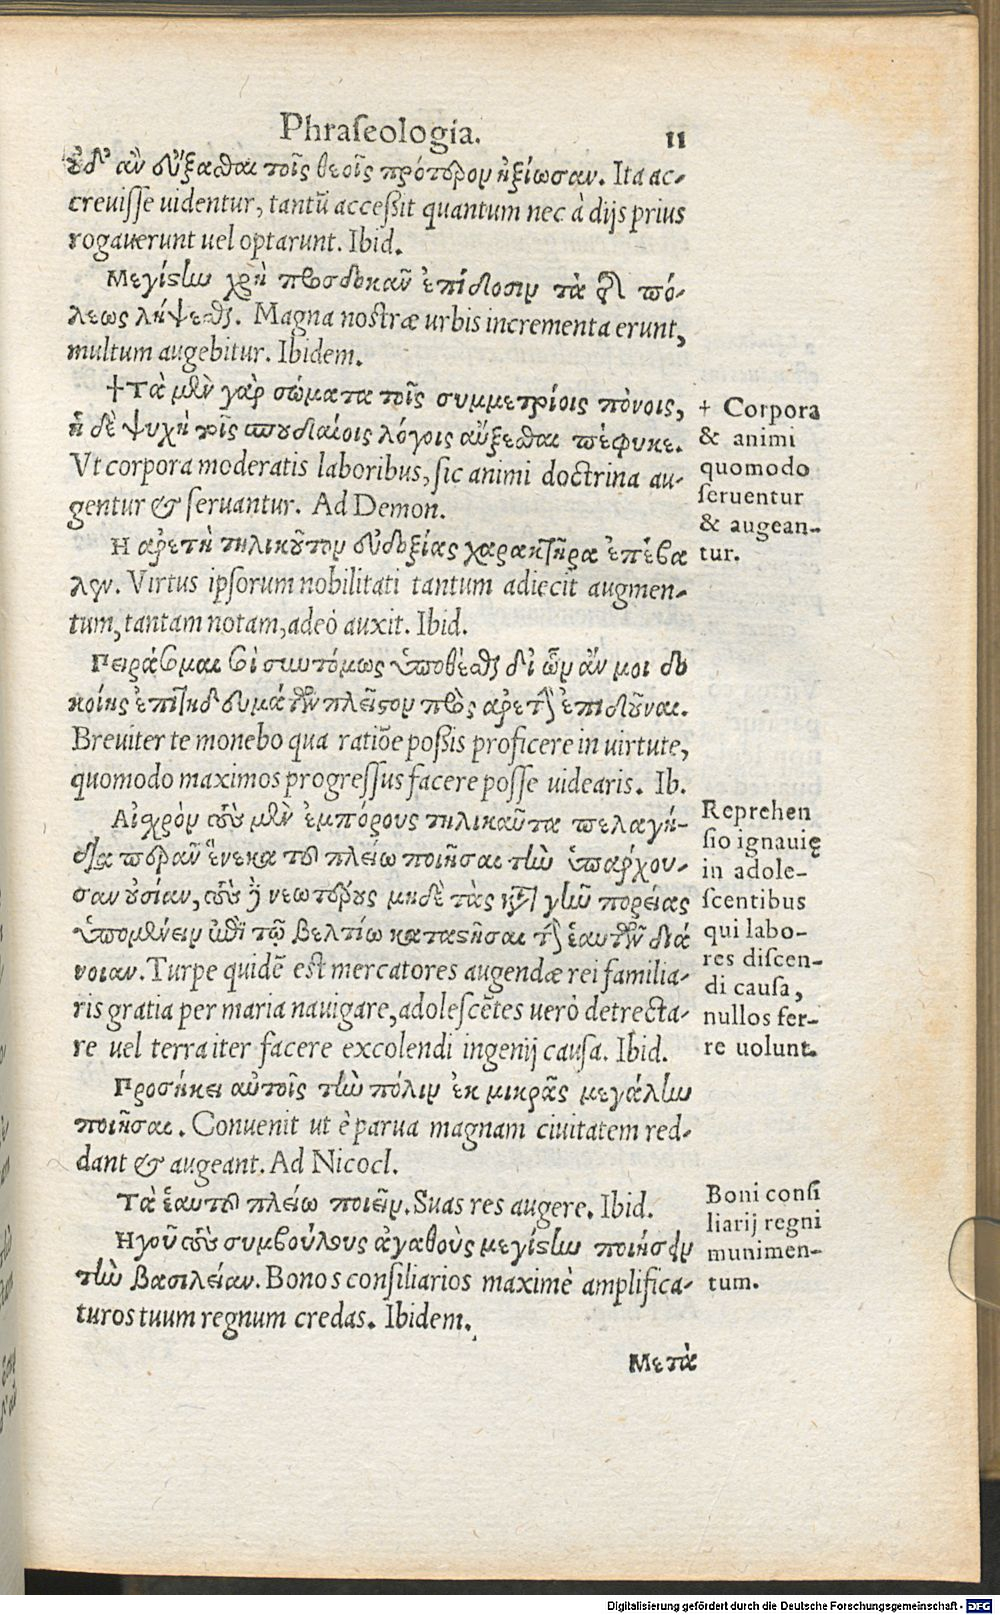 Phraseologia. 11
ἐδ' ἂν εὔξασθαι τοῖς θεοῖς πρότερον ἠξίωσαν. Ita ac-
creuisse uidentur, tantũ accessit quantum nec à dijs prius
rogauerunt uel optarunt. Ibid.
Μεγίστω χρὴ προσδοκᾶν ἐπίδοσιν τὰ τῆς πό-
λεως λήψεσθαι. Magna nostræ urbis incrementa erunt,
multum augebitur. Ibidem.
†Τὰ μὲν γὰρ σώματα τοῖς συμμετρίοις πόνοις,
ἡ δὲ ψυχὴ τοῖς σπουδαίοις λόγοις αὔξεσθαι πέφυκε.
Vt corpora moderatis laboribus, sic animi doctrina au-
gentur & seruantur. Ad Demon.
† Corpora
& animi
quomodo
seruentur
& augean-
tur.
Η ἀρετὴ τηλικοῦτον εὐδοξίας χαρακτῆρα ἐπέβα
λεν. Virtus ipsorum nobilitati tantum adiecit augmen-
tum, tantam notam, adeò auxit. Ibid.
Πειράσομαι σοὶ συντόμως ὑποθέσθαι δι' ὧν ἄν μοι δο
κοίης ἐπιτηδευμάτων πλεῖστον πρὸς ἀρετὴν ἐπιδοῦναι.
Breuiter te monebo qua ratiõe possis proficere in uirtute,
quomodo maximos progressus facere posse uidearis. Ib.
Αἰσχρὸν τοὺς μὲν ἐμπόρους τηλικαῦτα πελαγή-
διαπερᾶν ἕνεκα τοῦ πλείω ποιῆσαι τὴν ὑπάρχου-
σαν οὐσίαν, τοὺς δὲ νεωτέρους μηδὲ τὰς κατὰ γῆν πορείας
ὑπομένειν ἐπὶ τῷ βελτίω καταστῆσαι τὴν ἑαυτῶν διά
νοιαν. Turpe quidẽ est mercatores augendæ rei familia-
ris gratia per maria nauigare, adolescẽtes uerò detrecta-
re uel terra iter facere excolendi ingenij causa. Ibid.
Reprehen
sio ignauię
in adole-
scentibus
qui labo-
res discen-
di causa,
nullos fer-
re uolunt.
Προσήκει αὐτοῖς τὴν πόλιν ἐκ μικρᾶς μεγάλην
ποιῆσαι. Conuenit ut è parua magnam ciuitatem red-
dant & augeant. Ad Nicocl.
Τὰ ἑαυτοῦ πλείω ποιεῖν. Suas res augere. Ibid.
Ηγοῦ τοὺς συμβούλους ἀγαθοὺς μεγίστην ποιήσειν
τὴν βασιλείαν. Bonos consiliarios maximè amplifica-
turos tuum regnum credas. Ibidem.
Boni consi
liarij regni
munimen-
tum.
Μετὰ
Digitalisierung gefördert durch die Deutsche Forschungsgemeinschaft - DFG